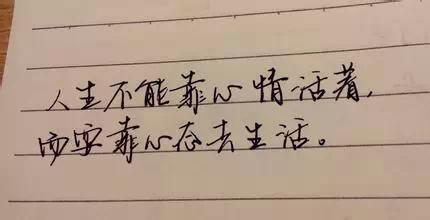 人生不能靠心情活着,
而要靠心态去生活。